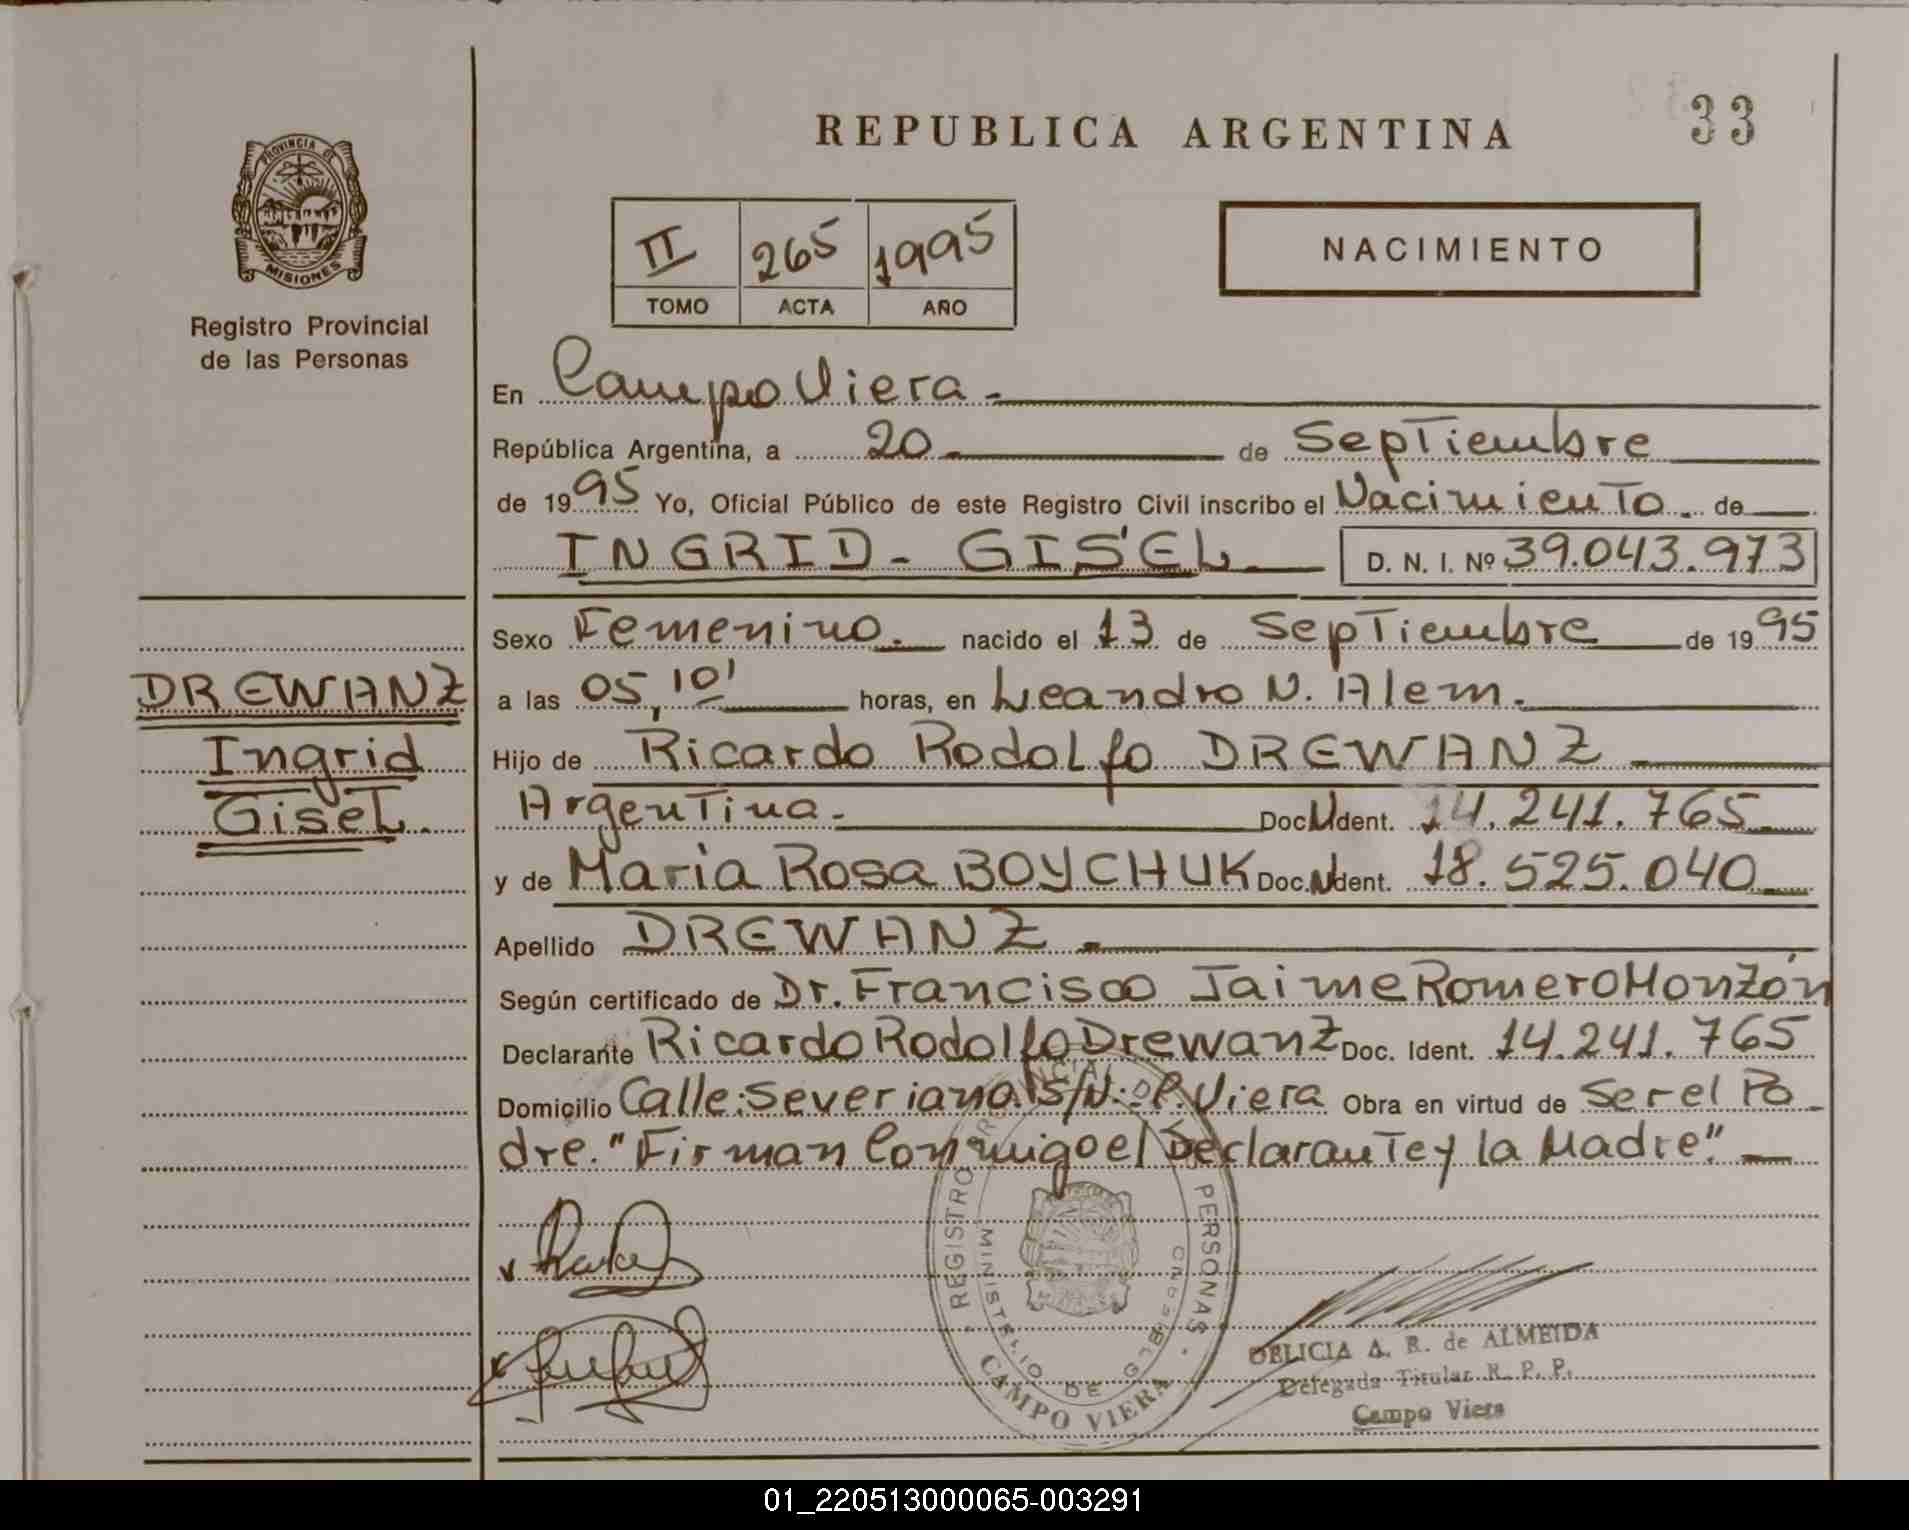 REPUBLICA ARGENTINA
33
PROVINCIA DE
MISIONES
Registro Provincial
de las Personas
II 265 1995
TOMO ACTA AÑO
NACIMIENTO
En Campo Viera.
República Argentina, a 20 de Septiembre
de 1995 Yo, Oficial Público de este Registro Civil inscribo el Nacimiento. de
INGRID - GISEL D. N. I. Nº 39.043.973
DREWANZ
Ingrid
Gisel.
Sexo Femenino. nacido el 13 de Septiembre de 1995
a las 05,10' horas, en Leandro N. Alem.
Hijo de Ricardo Rodolfo DREWANZ
Argentina. Doc. Ident. 14.241.765
y de Maria Rosa BOYCHUK Doc. Ident. 18.525.040
Apellido DREWANZ
Según certificado de Dr. Francisco Jaime Romero Monzón
Declarante Ricardo Rodolfo Drewanz Doc. Ident. 14.241.765
Domicilio Calle: Severiano. S/N. C. Viera Obra en virtud de Ser el Pa
dre. "Firman Conmigo el Declarante y la Madre".
REGISTRO PERSONAS
MINISTERIO DE
CAMPO VIERA
DELICIA A. R. de ALMEIDA
Delegada Titular R. P. P.
Campo Viera
01_220513000065-003291